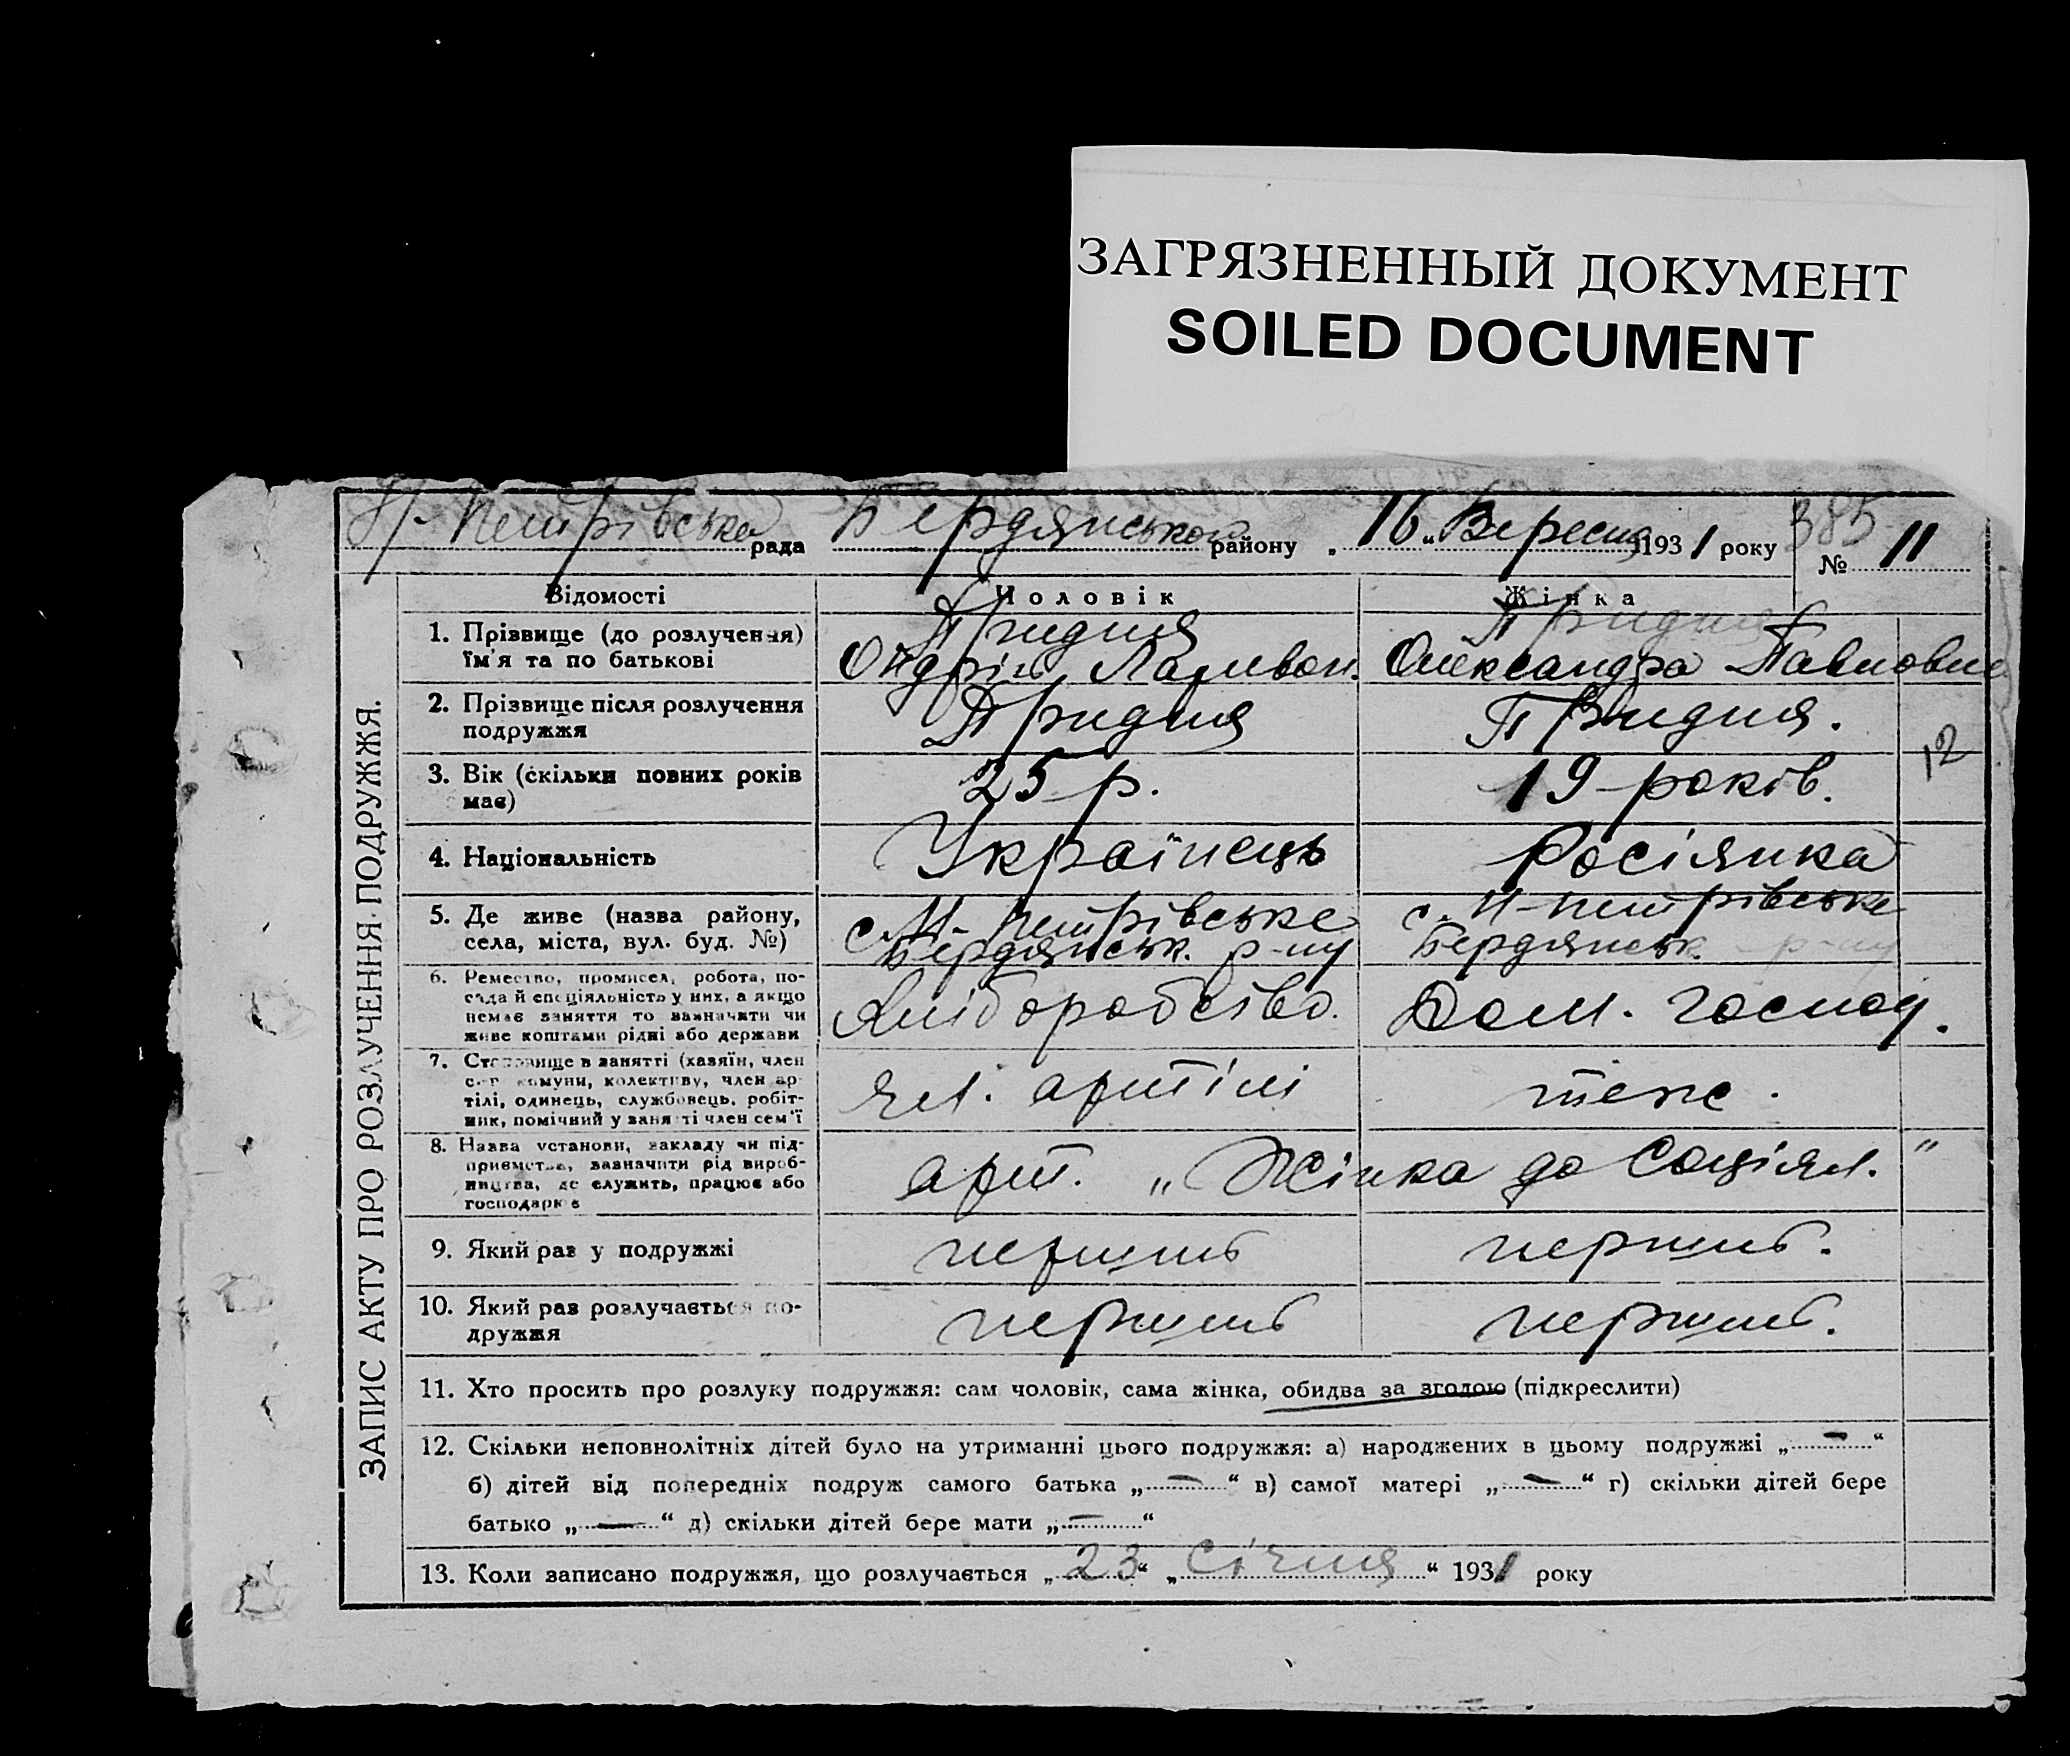 ЗАГРЯЗНЕННЫЙ ДОКУМЕНТ
SOILED DOCUMENT
Н-Петрівська рада Бердянського району „16“ Вересня 1931 року
385
№ 11
ЗАПИС АКТУ ПРО РОЗЛУЧЕННЯ ПОДРУЖЖЯ.
Відомості Чоловік Жінка
1. Прізвище (до розлучення) їм'я та по батькові
Придня Придня
Ондрій Ларивон. Олександра Павловна
2. Прізвище після розлучення подружжя
Придня Придня.
3. Вік (скільки повних років має)
25 р. 19 років.
12
4. Національність Українець Росіянка
5. Де живе (назва району, села, міста, вул. буд. №)
с. Н-Петрівське с. Н-Петрівське
Бердянськ. р-ну Бердянськ. р-ну
6. Ремество, промисел, робота, по-
сада й спеціяльність у них, а якщо
немає заняття то вазначити чи
живе коштами рідні або держави
Хліборобство. Дом. господ.
7. Становище в занятті (хазяїн, член
с.-г. комуни, колективу, член ар-
тілі, одинець, службовець, робіт-
ник, помічний у занятті член сем'ї
чл. артілі теж.
8. Назва установи, закладу чи під-
приємства, зазначити рід вироб-
ництва, де служить, працює або
господарює
арт. „Жінка до Соціял."
9. Який раз у подружжі перший перший.
10. Який раз розлучається по-
дружжя
перший перший.
11. Хто просить про розлуку подружжя: сам чоловік, сама жінка, обидва за згодою (підкреслити)
12. Скільки неповнолітніх дітей було на утриманні цього подружжя: а) народжених в цьому подружжі „—“
б) дітей від попередніх подруж самого батька „—“ в) самої матері „—“ г) скільки дітей бере
батько „—“ д) скільки дітей бере мати „—“
13. Коли записано подружжя, що розлучається „23“ „Січня“ 1931 року